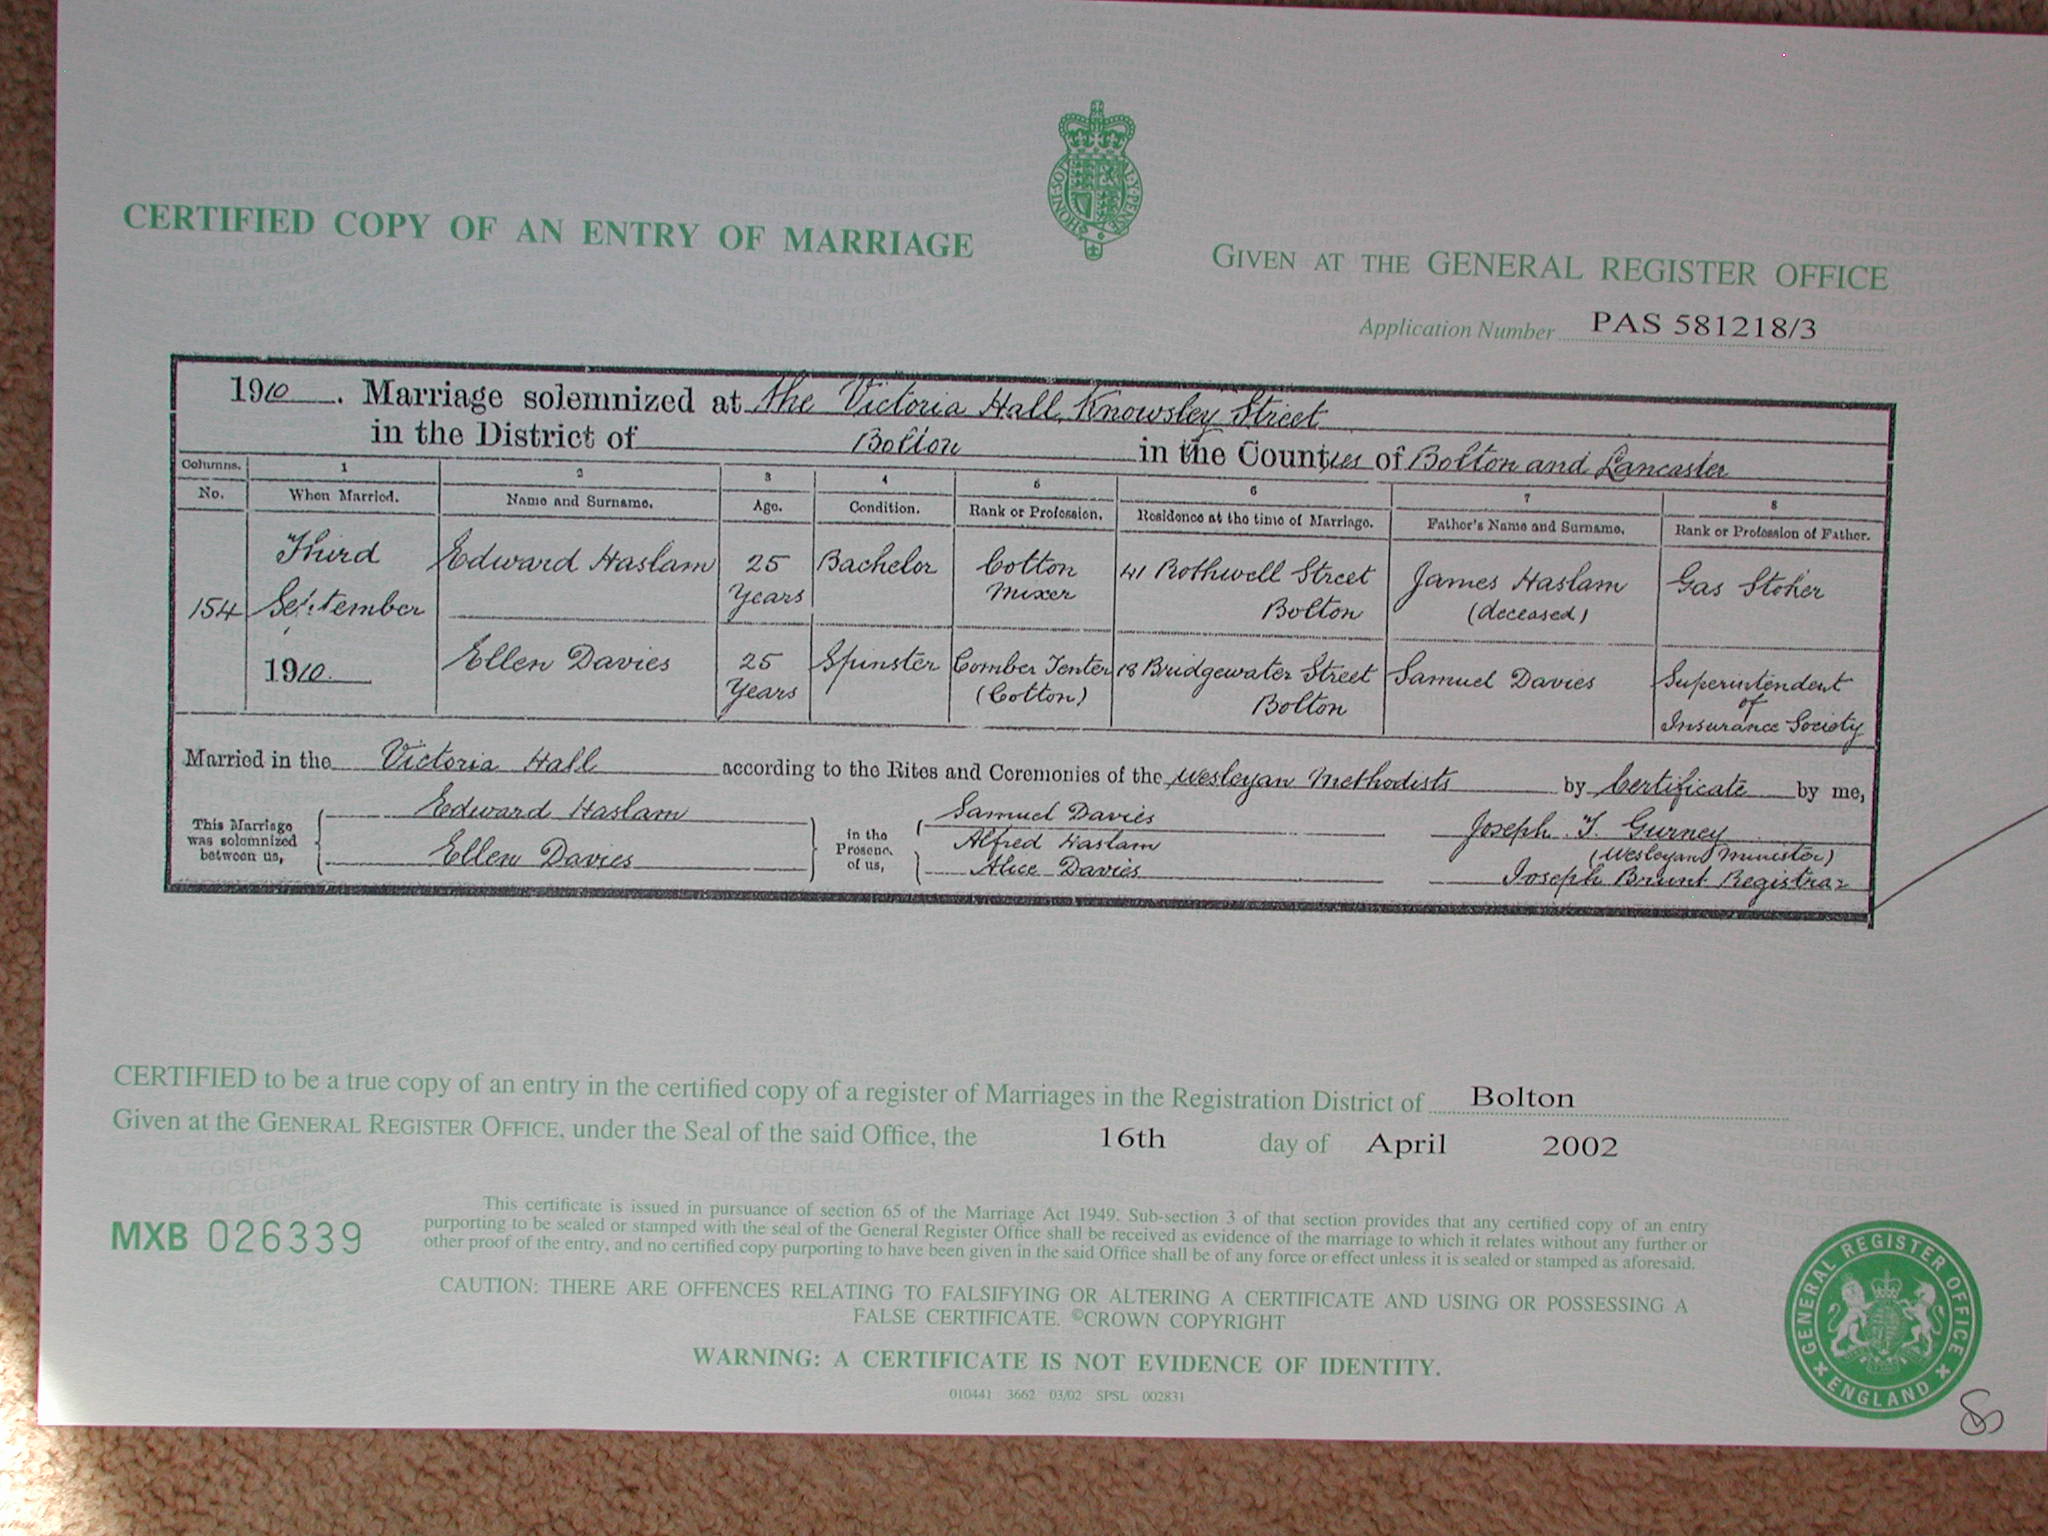 CERTIFIED COPY OF AN ENTRY OF MARRIAGE
GIVEN AT THE GENERAL REGISTER OFFICE
Application Number PAS 581218/3
1910. Marriage solemnized at the Victoria Hall, Knowsley Street
in the District of Bolton in the Counties of Bolton and Lancaster
Columns. 1 2 3 4 5 6 7 8
No. When Married. Name and Surname. Age. Condition. Rank or Profession. Residence at the time of Marriage. Father's Name and Surname. Rank or Profession of Father.
154 Third September 1910
Edward Haslam 25 Years Bachelor Cotton Mixer 41 Rothwell Street Bolton James Haslam (deceased) Gas Stoker
Ellen Davies 25 Years Spinster Comber Tenter (Cotton) 18 Bridgewater Street Bolton Samuel Davies Superintendent of Insurance Society
Married in the Victoria Hall according to the Rites and Ceremonies of the Wesleyan Methodists by Certificate by me,
This Marriage was solemnized between us,
Edward Haslam
Ellen Davies
in the Presence of us,
Samuel Davies
Alfred Haslam
Alice Davies
Joseph T. Gurney
(Wesleyan Minister)
Joseph Brunt Registrar
CERTIFIED to be a true copy of an entry in the certified copy of a register of Marriages in the Registration District of Bolton
Given at the GENERAL REGISTER OFFICE, under the Seal of the said Office, the 16th day of April 2002
MXB 026339
This certificate is issued in pursuance of section 65 of the Marriage Act 1949. Sub-section 3 of that section provides that any certified copy of an entry
purporting to be sealed or stamped with the seal of the General Register Office shall be received as evidence of the marriage to which it relates without any further or
other proof of the entry, and no certified copy purporting to have been given in the said Office shall be of any force or effect unless it is sealed or stamped as aforesaid.
CAUTION: THERE ARE OFFENCES RELATING TO FALSIFYING OR ALTERING A CERTIFICATE AND USING OR POSSESSING A
FALSE CERTIFICATE. ©CROWN COPYRIGHT
WARNING: A CERTIFICATE IS NOT EVIDENCE OF IDENTITY.
010441 3662 03/02 SPSL 002831
GENERAL REGISTER OFFICE
ENGLAND